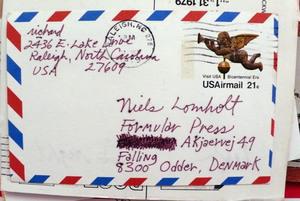 31 1979
richard
2436 E. Lake Drive
Raleigh, North Carolina
USA 27609
RALEIGH, NC
Visit USA Bicentennial Era
USAirmail 21c
Niels Lomholt
Formular Press
Akjaervej 49
Falling
8300 Odder, DENMARK